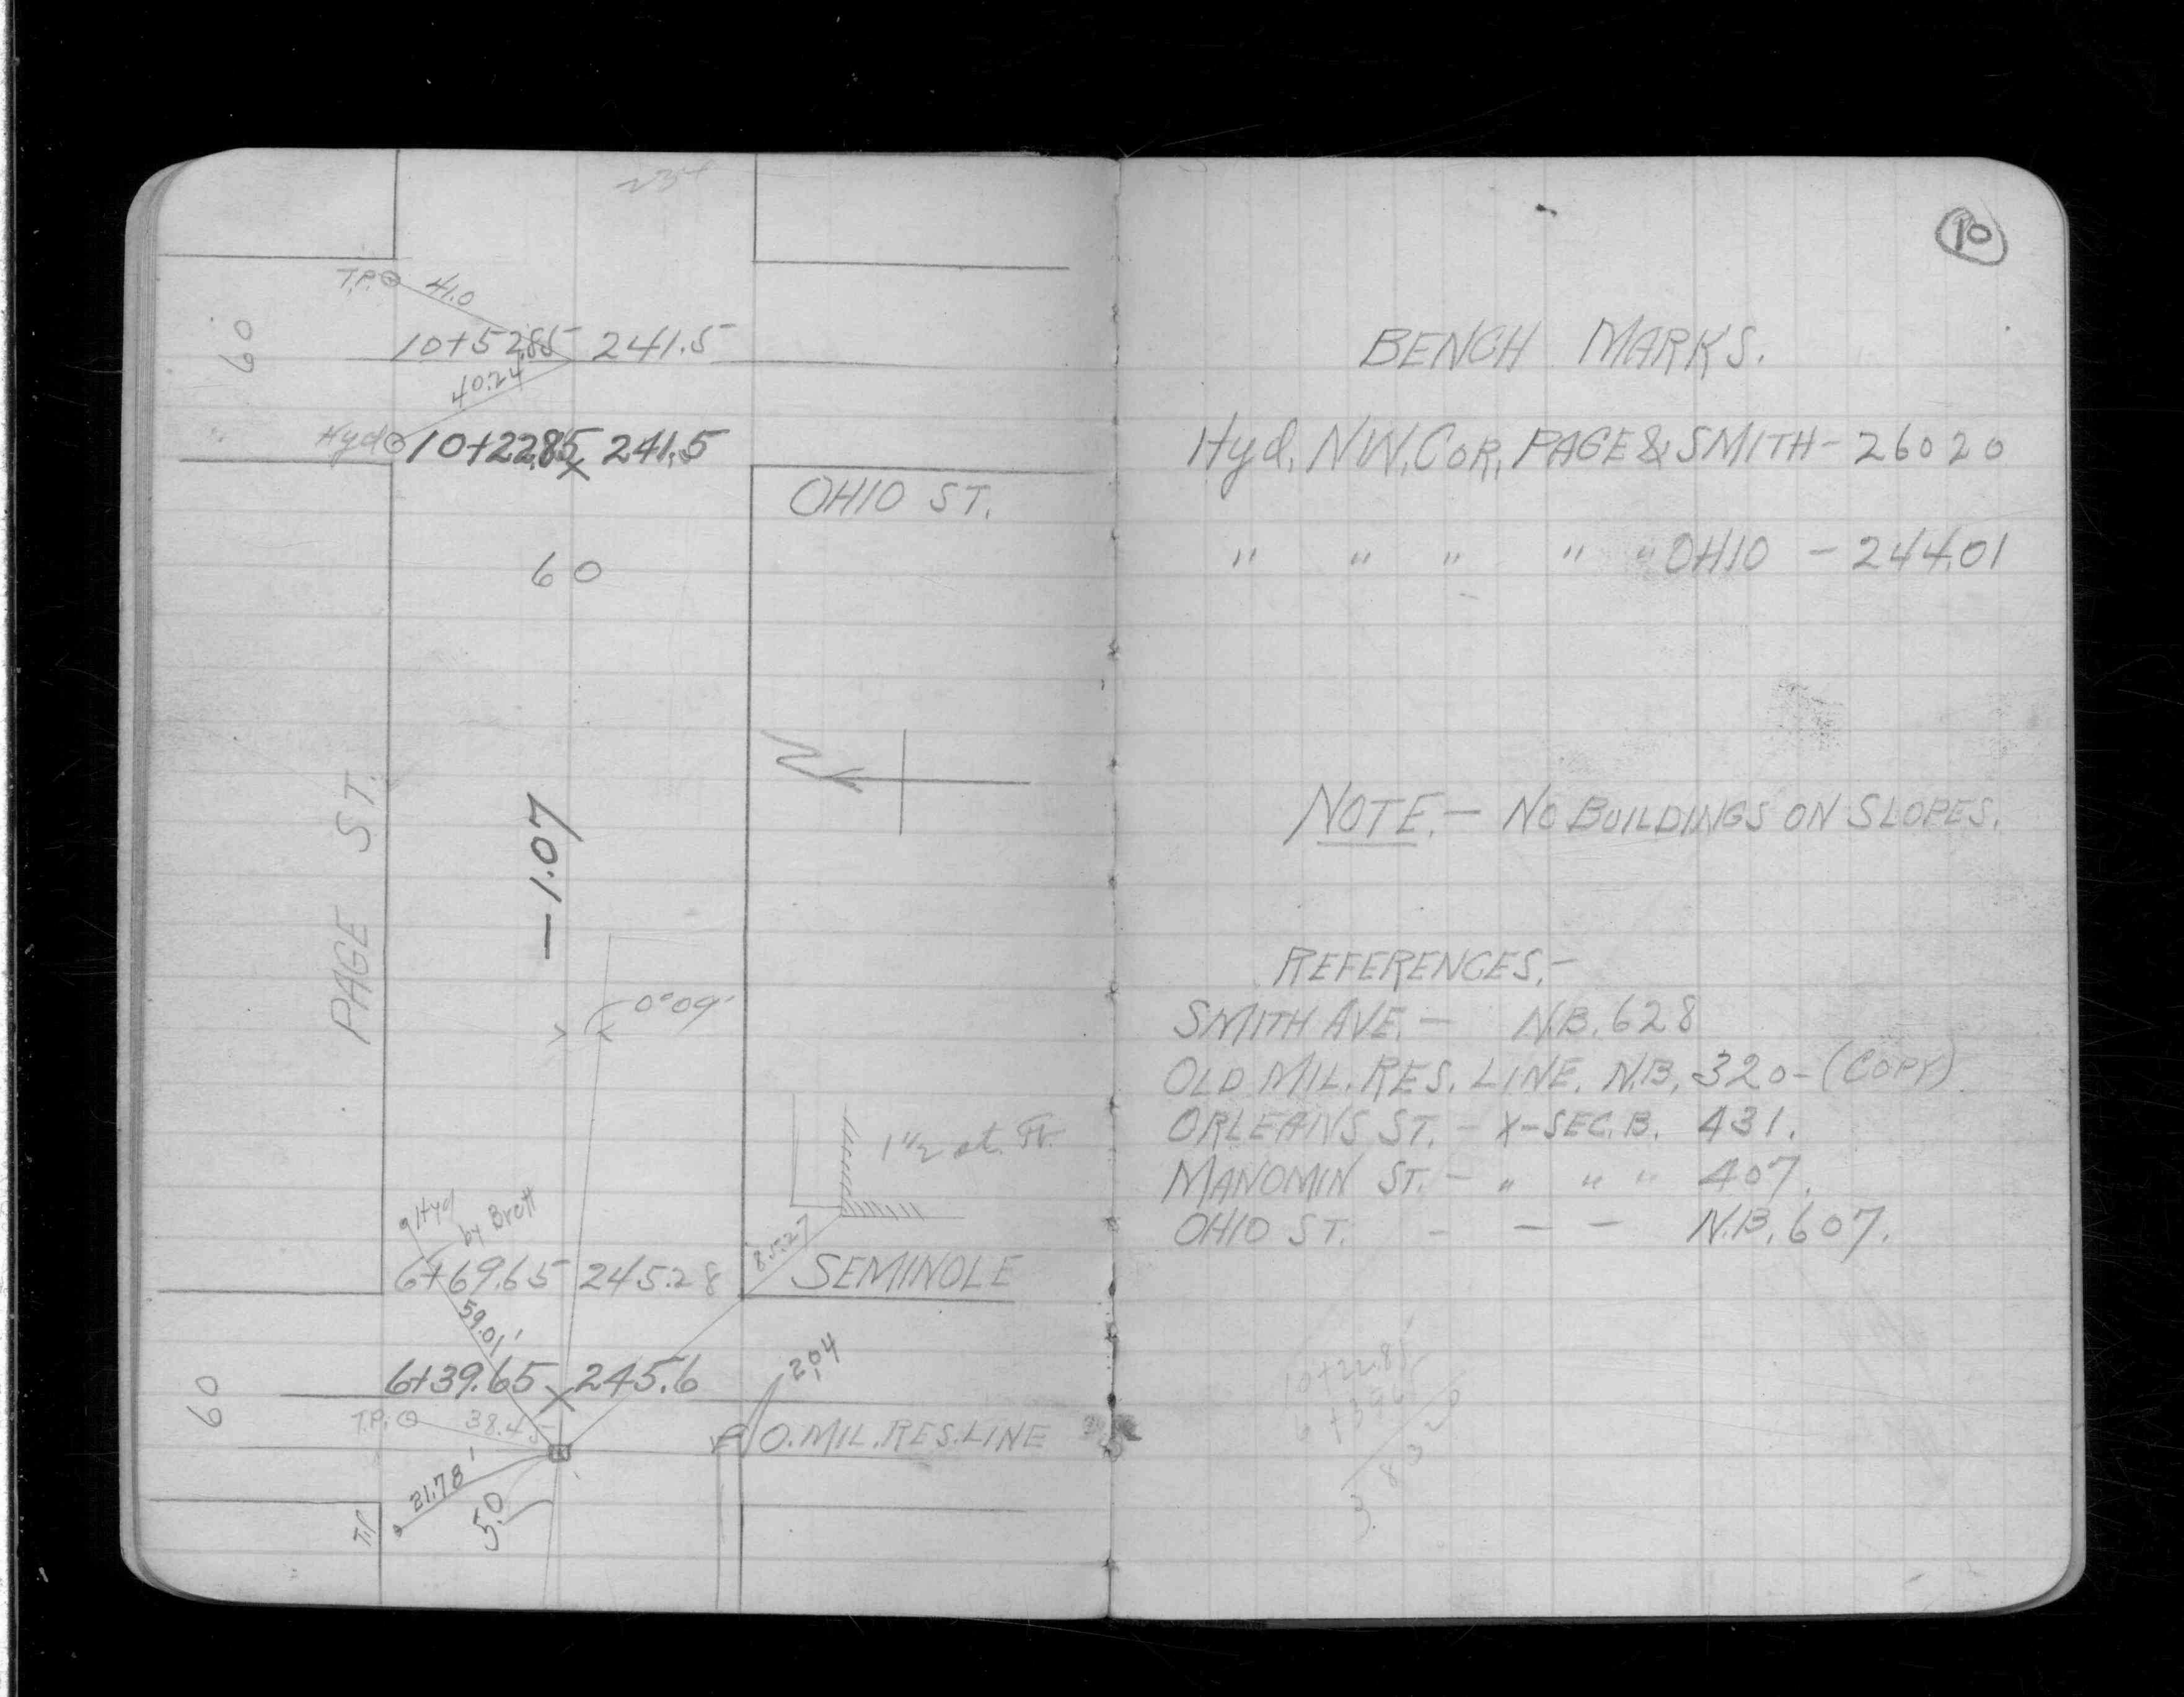 T.P. 41.0
60
10+52.85 241.5
40.24
Hyd 10+22.85 241.5
OHIO ST.
60
PAGE ST.
-1.07
N
0°09'
1 1/2 st. Fr.
Hyd
by Brett
85.27
6+69.65 245.28
SEMINOLE
59.01'
2.04
6+39.65 245.6
60
T.P. 38.45
O.MIL.RES.LINE
21.78'
5.0
T.P.
10
BENCH MARKS.
Hyd. N.W. COR. PAGE & SMITH - 260 20
" " " " " OHIO - 244.01
NOTE.- NO BUILDINGS ON SLOPES.
REFERENCES.-
SMITH AVE. - N.B. 628
OLD MIL. RES. LINE. N.B. 320-(COPY)
ORLEANS ST. - X-SEC. B. 431.
MANOMIN ST. - " " " 407.
OHIO ST. - - - N.B. 607.
10+22.85